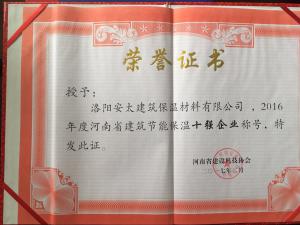 荣誉证书
授予：
洛阳安太建筑保温材料有限公司，2016
年度河南省建筑节能保温十强企业称号，特
发此证。
河南省建设科技协会
二〇一七年 月